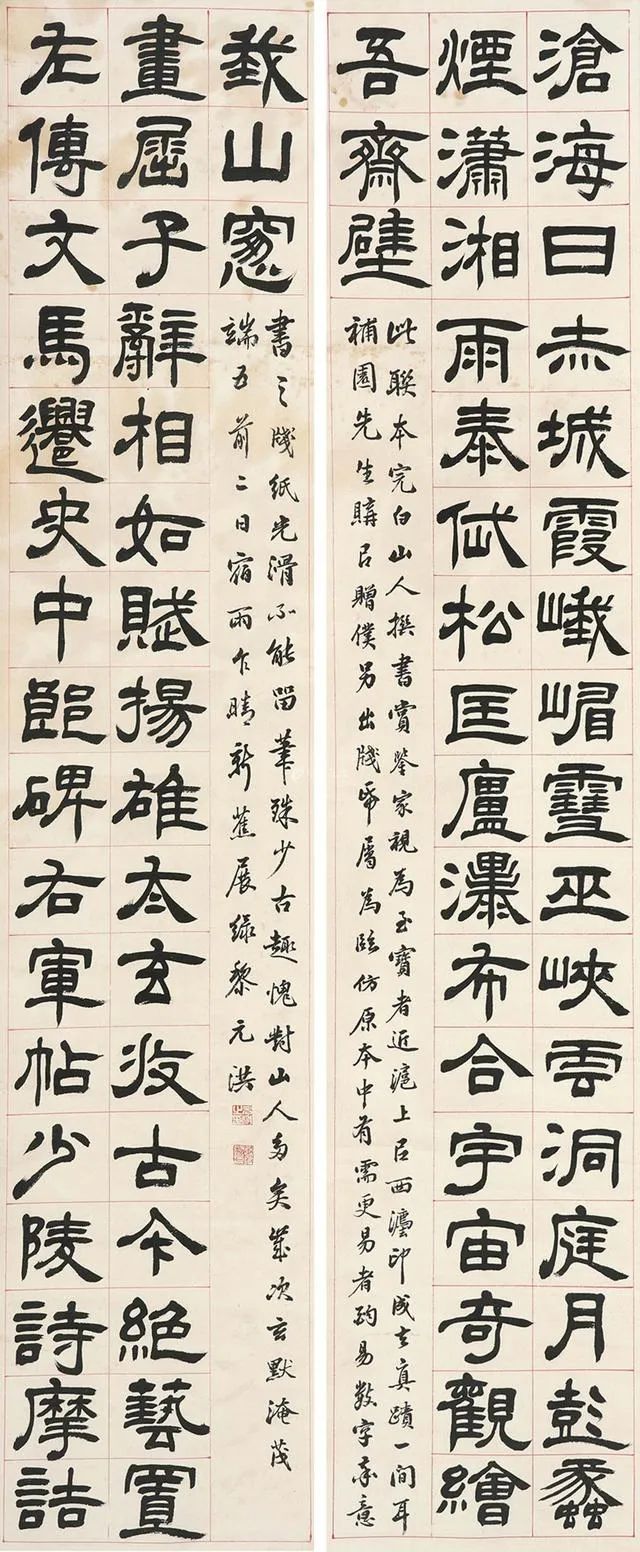 滄海日赤城霞峨嵋雪巫峽雲洞庭月彭蠡
煙瀟湘雨泰岱松匡廬瀑布合宇宙奇觀繪
吾齋壁
此聯本完白山人撰書賞鑒家視為至寶者近滬上㠯西灋印成去真蹟一間耳
補園先生購㠯贈僕另出牋帋屬為臨仿原本中有需更易者酌易數字率意
左傳文馬遷史中郎碑右軍帖少陵詩摩詰
畫屈子辭相如賦揚雄太玄收古今絕藝置
我山窻
書之牋紙光滑不能留筆殊少古趣愧對山人多矣歲次玄默淹茂
端五前二日宿雨乍晴新蕉展綠黎元洪